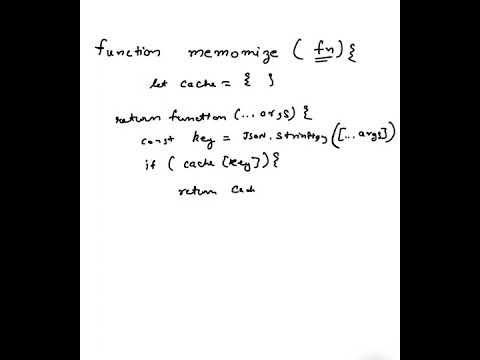 function memomize ( fn ) {
let cache = { }
return function (... args) {
const key = JSON.stringify ([...args])
if ( cache [key]) {
return cach